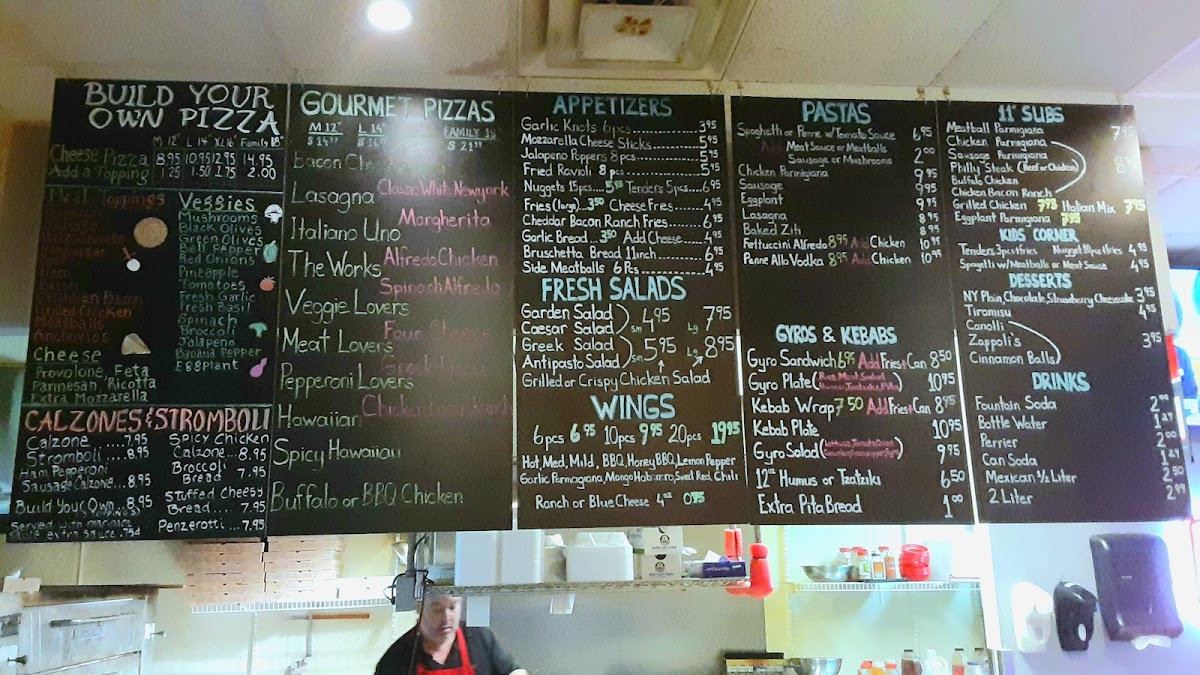 BUILD YOUR
OWN PIZZA
M 12" L 14" XL 16" Family 18"
Cheese Pizza 8.95 10.95 12.95 14.95
Add a Topping 1.25 1.50 1.75 2.00
Toppings
Canadian Bacon
Grilled Chicken
Meatballs
Anchovies
Cheese
Provolone, Feta
Parmesan, Ricotta
Extra Mozzarella
Veggies
Mushrooms
Black Olives
Green Olives
Bell Pepper
Red Onions
Pineapple
Tomatoes
Fresh Garlic
Fresh Basil
Spinach
Broccoli
Jalapeno
Banana Pepper
Eggplant
CALZONES & STROMBOLI
Calzone ....7.95
Stromboli ....8.95
Ham Pepperoni
Sausage Calzone...8.95
Build Your Own..8.95
Served with marinara
extra sauce .75¢
Spicy Chicken
Calzone...8.95
Broccoli
Bread ... 7.95
Stuffed Cheesy
Bread... 7.95
Penzerotti... 7.95
GOURMET PIZZAS
M 12" L 14" FAMILY 18
$14 $16 $21
Lasagna
Classic White Newyork
Margherita
Italiano Uno
Alfredo Chicken
The Works
Spinach Alfredo
Veggie Lovers
Four Cheese
Meat Lovers
Pepperoni Lovers
Hawaiian
Spicy Hawaiian
Buffalo or BBQ Chicken
APPETIZERS
Garlic Knots 6 pcs 3.95
Mozzarella Cheese Sticks 5.95
Jalapeno Poppers 8 pcs 5.95
Fried Ravioli 8 pcs 5.95
Nuggets 15pcs....5.95 Tenders 5pcs...6.95
Fries (large)...3.50 Cheese Fries 4.95
Cheddar Bacon Ranch Fries 6.95
Garlic Bread...3.50 Add Cheese 4.95
Bruschetta Bread 11inch 6.95
Side Meatballs 6 Pcs 4.95
FRESH SALADS
Garden Salad
Caesar Salad sm 4.95 Lg 7.95
Greek Salad
Antipasto Salad sm 5.95 Lg 8.95
Grilled or Crispy Chicken Salad
WINGS
6pcs 6.95 10pcs 9.95 20pcs 19.95
Hot, Med, Mild, BBQ, Honey BBQ, Lemon Pepper
Garlic Parmagiana, Mango Habanero, Sweet Red Chili
Ranch or Blue Cheese 4oz 0.75
PASTAS
Spaghetti or Penne w/Tomato Sauce 6.95
Add Meat Sauce or Meatballs
Sausage or Mushrooms 2.00
Chicken Parmigiana 9.95
Sausage 9.95
Eggplant 9.95
Lasagna 8.95
Baked Ziti 8.95
Fettuccini Alfredo 8.95 Add Chicken 10.95
Penne Alla Vodka 8.95 Add Chicken 10.95
GYROS & KEBABS
Gyro Sandwich 6.95 Add Fries+Can 8.50
Gyro Plate 10.95
Kebab Wrap 7.50 Add Fries+Can 8.95
Kebab Plate 10.95
Gyro Salad 9.95
12" Humus or Tzatziki 6.50
Extra Pita Bread 1.00
11" SUBS
Meatball Parmigiana 7.95
Chicken Parmigiana
Sausage Parmigiana
Philly Steak (Beef or Chicken)
Buffalo Chicken
Chicken Bacon Ranch
Grilled Chicken 7.95 Italian Mix 7.95
Eggplant Parmigiana 7.95
KIDS CORNER
Tenders 3pcs fries Nuggets 10pcs fries 4.95
Spagetti w/Meatballs or Meat Sauce 4.95
DESSERTS
NY Plain, Chocolate, Strawberry Cheesecake 3.95
Tiramisu 4.95
Canolli
Zappoli's
Cinnamon Balls 3.95
DRINKS
Fountain Soda 2.00
Bottle Water 1.29
Perrier 2.00
Can Soda 1.29
Mexican 1/2 Liter 2.50
2 Liter 2.99